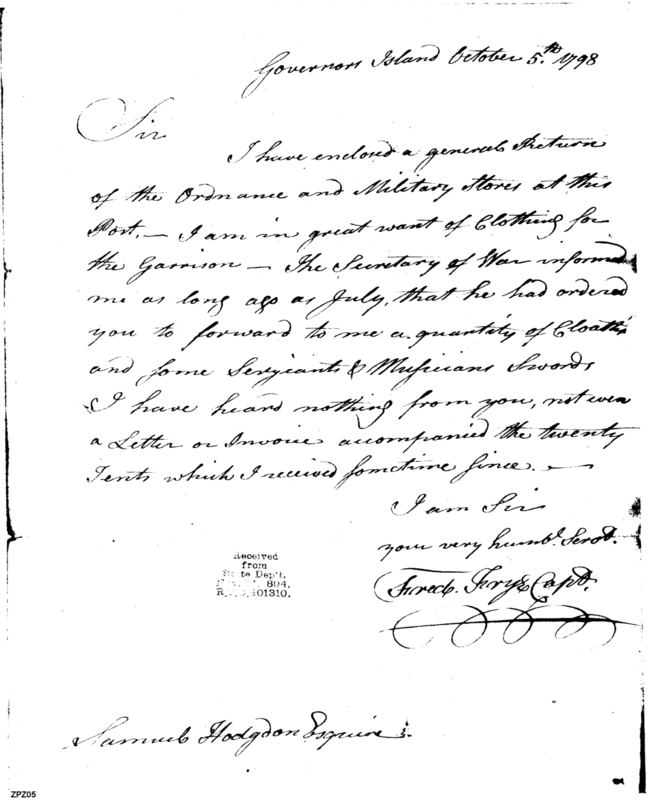 Governors Island October 5.th 1798
Sir
I have enclosed a general Return
of the Ordnance and Military Stores at this
Post.— I am in great want of Clothing for
the Garrison — The Secretary of War informed
me as long ago as July, that he had ordered
you to forward to me a quantity of Cloathg
and some Serjeants & Musicians Swords
I have heard nothing from you, not even
a Letter or Invoice accompanied the twenty
Tents which I received sometime since. —
I am Sir
your very humbl. Servt.
Fredk. Frye Capt.
Received
from
State Dep't.
894.
401310.
Samuel Hodgdon Esquire
ZPZ05